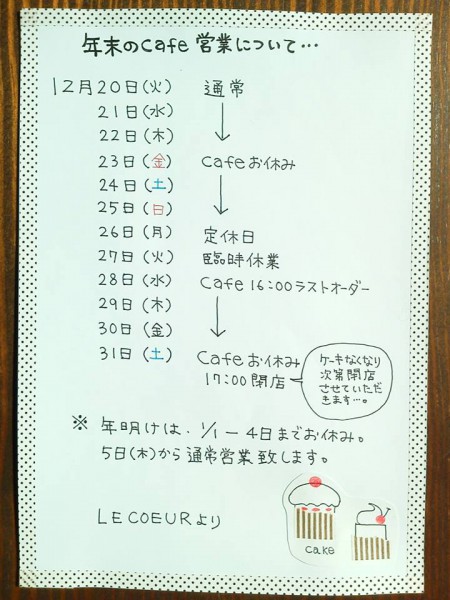 年末のcafe 営業について…
12月20日(火) 通常
21日(水) ↓
22日(木)
23日(金) cafeお休み
24日(土) ↓
25日(日)
26日(月) 定休日
27日(火) 臨時休業
28日(水) cafe 16:00ラストオーダー
29日(木) ↓
30日(金)
31日(土) cafeお休み
17:00閉店
ケーキなくなり
次第閉店
させていただ
きます…。
※ 年明けは、1/1〜4日までお休み。
5日(木)から通常営業致します。
LECOEURより
cake